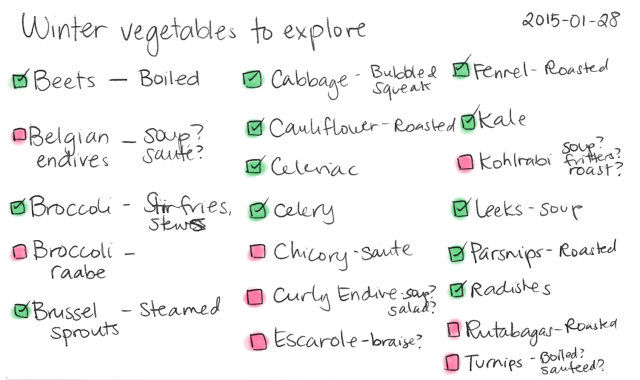 Winter vegetables to explore
2015-01-28
Beets - Boiled
Belgian endives - soup? sauté?
Broccoli - Stir fries, stews
Broccoli raabe -
Brussel sprouts - Steamed
Cabbage - Bubble & Squeak
Cauliflower - Roasted
Celeriac
Celery
Chicory - Saute
Curly Endive - soup? salad?
Escarole - braise?
Fennel - Roasted
Kale
Kohlrabi soup? fritters? roast?
Leeks - soup
Parsnips - Roasted
Radishes
Rutabagas - Roasted
Turnips - Boiled? sauteed?